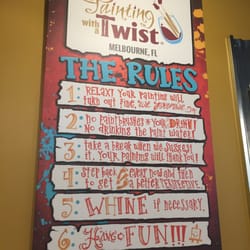 Painting
with a
Twist
MELBOURNE, FL
THE RULES
1: RELAX! YOUR PAINTING WILL
TURN OUT FINE, WE PROMISE.
2: NO PAINTBRUSHES IN YOUR DRINK!
NO DRINKING THE PAINT WATER!
3: TAKE A BREAK WHEN WE SUGGEST
IT. YOUR PAINTING WILL THANK YOU!
4: STEP BACK EVERY NOW AND THEN
TO GET A BETTER PERSPECTIVE.
5: WHINE IF NECESSARY.
6: Have FUN!!!